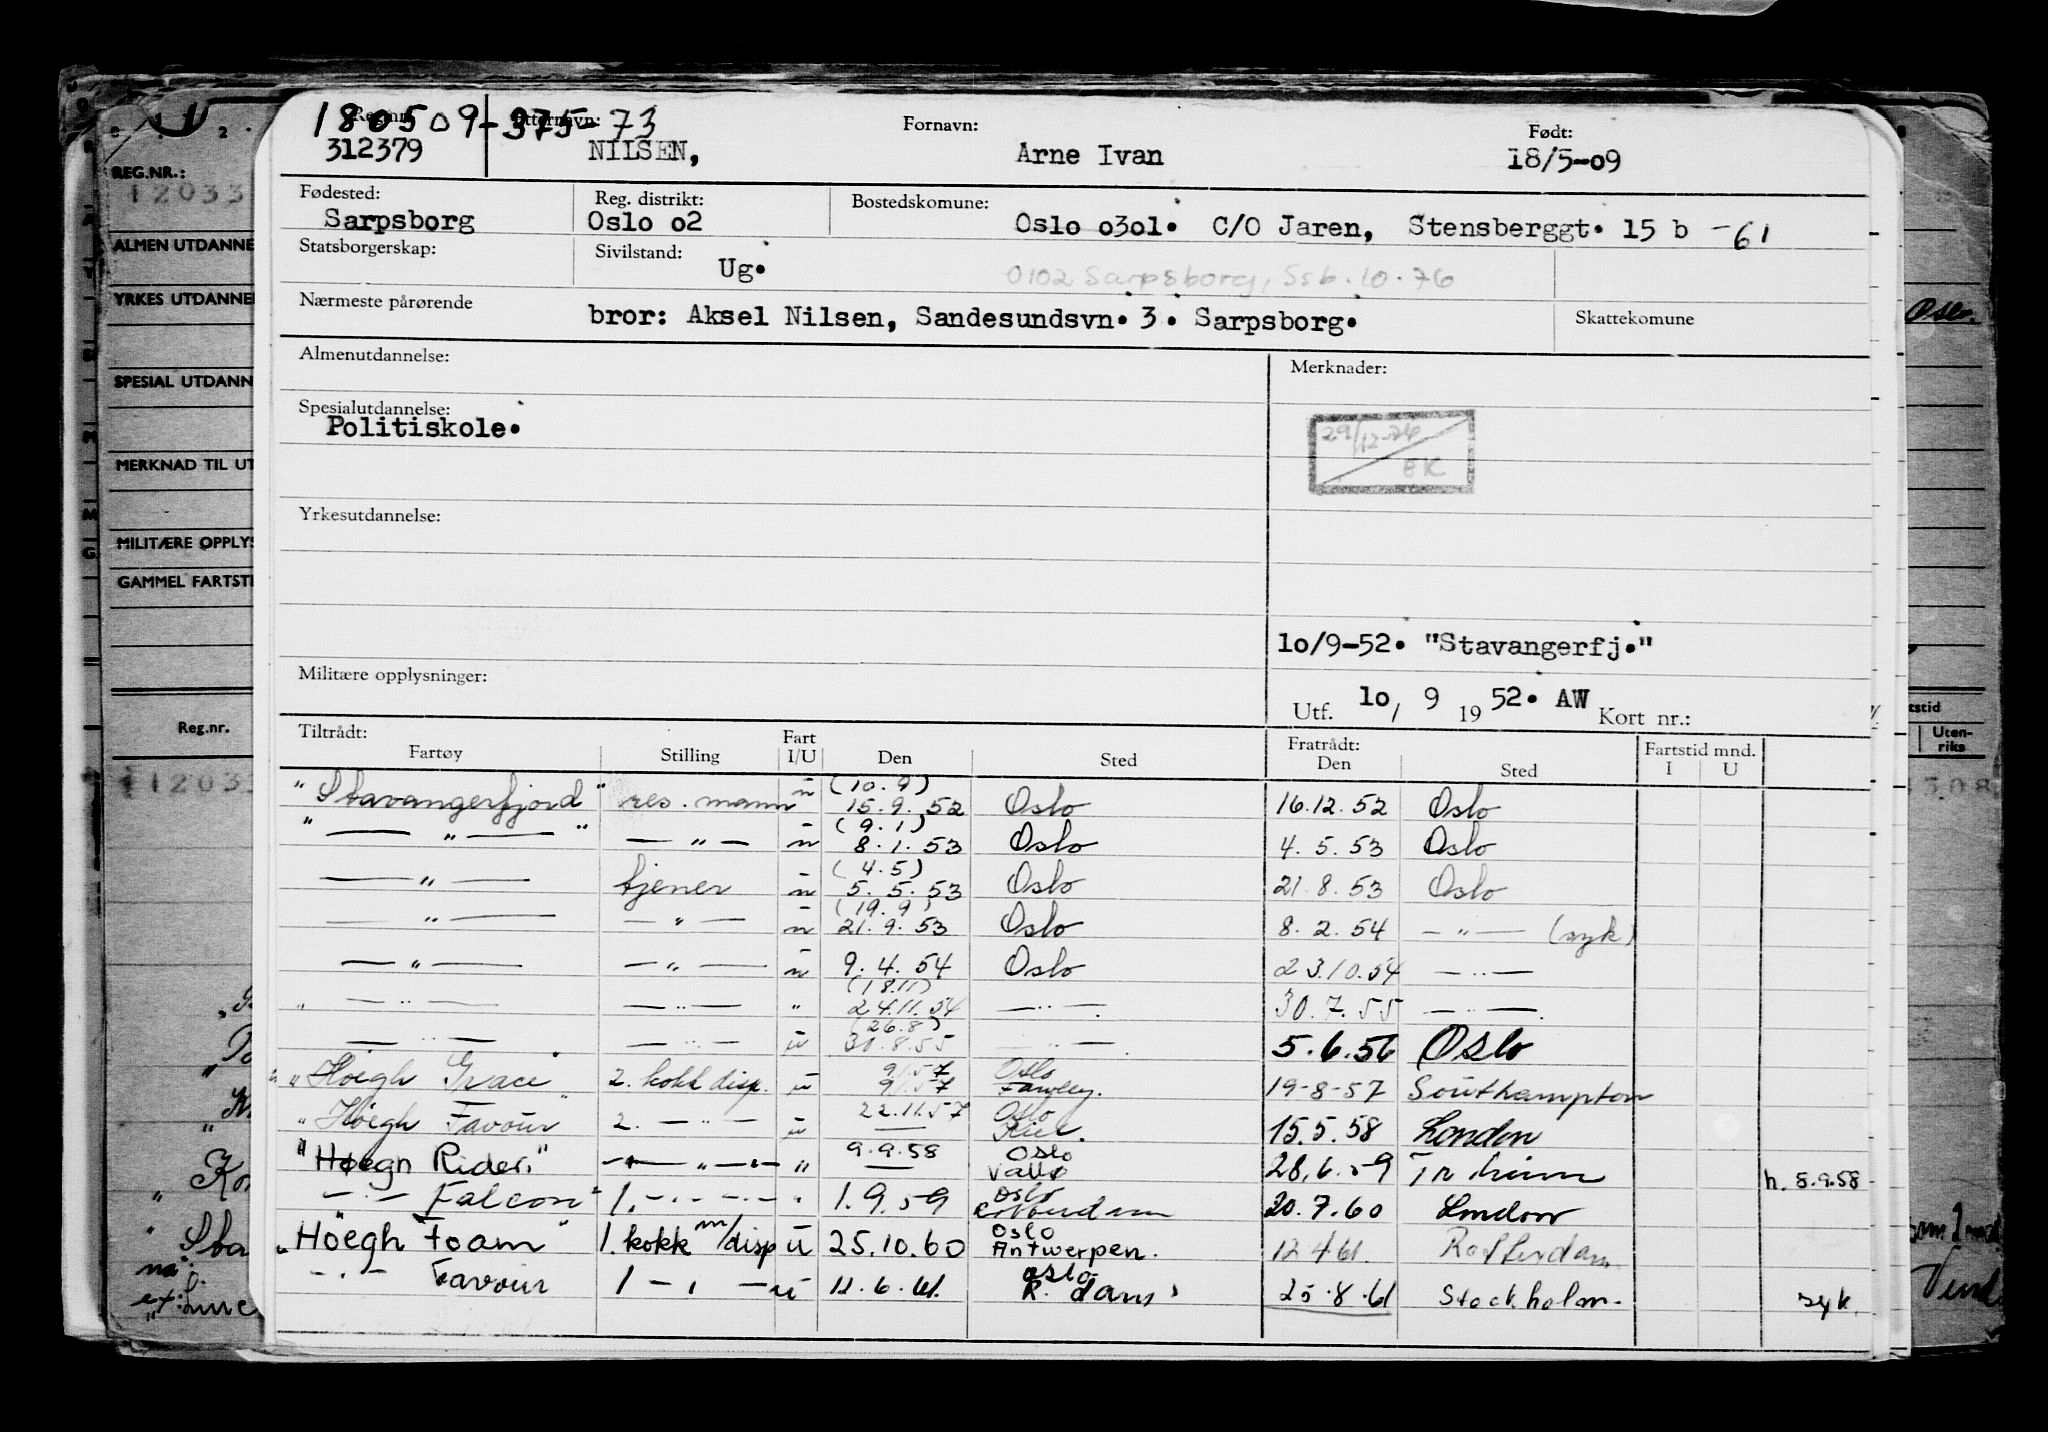 180509-375-73
Reg.nr. Etternavn: Fornavn: Født:
312379 NILSEN, Arne Ivan 18/5-09
Fødested: Reg. distrikt: Bostedskomune:
Sarpsborg Oslo o2 Oslo o3o1. C/O Jaren, Stensberggt. 15 b -61
Statsborgerskap: Sivilstand: Ug.
0102 Sarpsborg, Ssb. 10.76
Nærmeste pårørende bror: Aksel Nilsen, Sandesundsvn. 3. Sarpsborg. Skattekomune
Almenutdannelse: Merknader:
Spesialutdannelse:
Politiskole.
29/12-76
EK
Yrkesutdannelse:
lo/9-52. "Stavangerfj."
Militære opplysninger:
Utf. lo/ 9 19 52. AW Kort nr.:
Tiltrådt: Fart Fratrådt: Fartstid mnd.
Fartøy Stilling I/U Den Sted Den Sted I U
(10.9)
"Stavangerfjord" res. mann u 15.9.52 Oslo 16.12.52 Oslo
(9.1)
" — " — " — " — u 8.1.53 Oslo 4.5.53 Oslo
(4.5)
— " — tjener u 5.5.53 Oslo 21.8.53 Oslo
(19.9)
— " — — " — u 21.9.53 Oslo 8.2.54 — " — (syk)
— " — — " — u 9.4.54 Oslo 23.10.54 — " —
(18.11)
" — " — — " — " 24.11.54 — " — 30.7.55 — " —
(26.8)
— " — — " — u 30.8.55 — " — 5.6.56 Oslo
9/1.57 Oslo
"Höegh Grace" 2. kokk disp. u 9/1.57 Fawley. 19-8-57 Southampton
22.11.57 Oslo
"Höegh Favour" 2. — " — u — Kiel. 15.5.58 London
9.9.58 Oslo
"Høegh Rider." — " — " — Vallø 28.6.59 Tr.heim h. 8.9.58
Oslo
— " — Falcon" 1. — " — " 1.9.59 20.7.60 London
Oslo
"Höegh Foam" 1. kokk m/disp u 25.10.60 Antwerpen. 12.4.61. Rotterdam
Oslo
— " — Favour 1 — " — u 11.6.61. R.dam 25.8.61 Stockholm. syk.
REG.NR.:
12033
ALMEN UTDANNE
YRKES UTDANNE
SPESIAL UTDANN
MERKNAD TIL UT
MILITÆRE OPPLYS
GAMMEL FARTSTI
Reg.nr.
12033
Oslo.
tstid
Uten-
riks